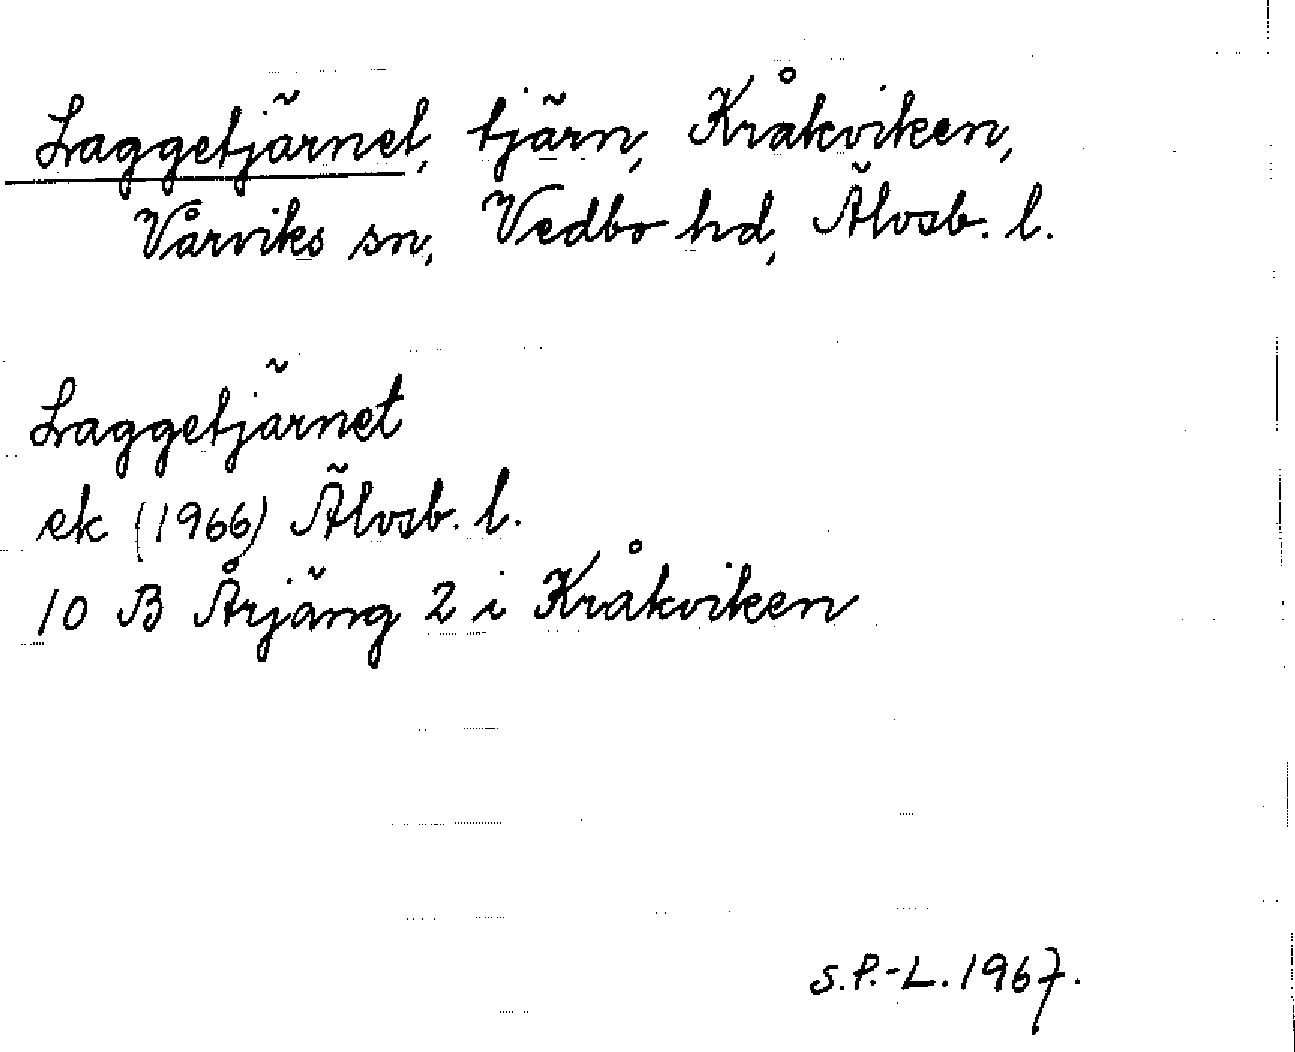 Laggetjärnet, tjärn, Kråkviken,
Vårviks sn, Vedbo hd, Älvsb. l.
Laggetjärnet
ek (1966) Älvsb. l.
10 B Årjäng 2 i Kråkviken
S.P.-L. 1967.